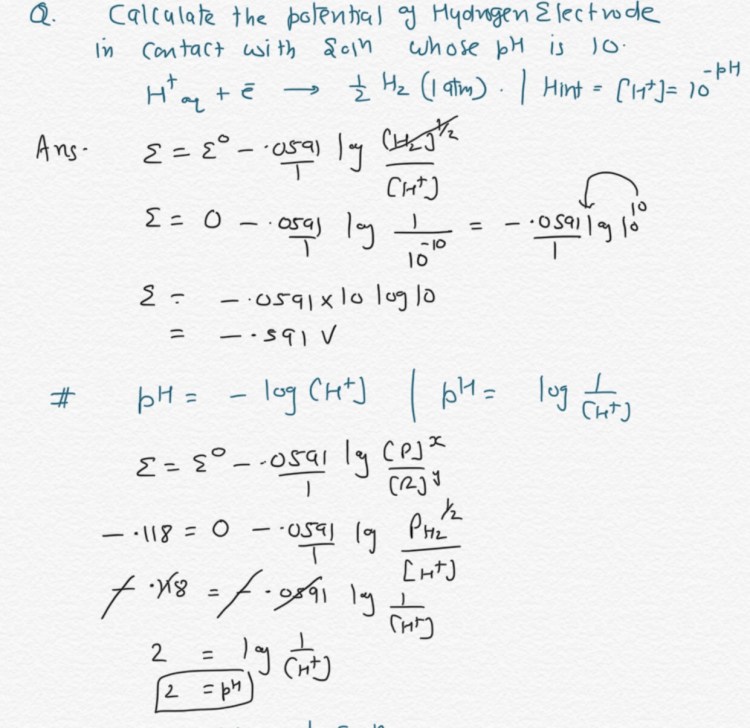 Q. Calculate the potential of Hydrogen Electrode
in contact with soln whose pH is 10.
H⁺aq + ē → ½ H₂ (1 atm). | Hint = [H⁺] = 10^-pH
Ans. Ɛ = Ɛ° - .0591/1 log [H₂]^½/[H⁺]
Ɛ = 0 - .0591/1 log 1/10^-10 = - .0591/1 log 10^10
Ɛ = - .0591 x 10 log 10
= - .591 V
# pH = - log [H⁺] | pH = log 1/[H⁺]
Ɛ = Ɛ° - .0591/1 log [P]^x/[R]^y
- .118 = 0 - .0591/1 log P_H₂^½/[H⁺]
- .118 = - .0591 log 1/[H⁺]
2 = log 1/[H⁺]
2 = pH